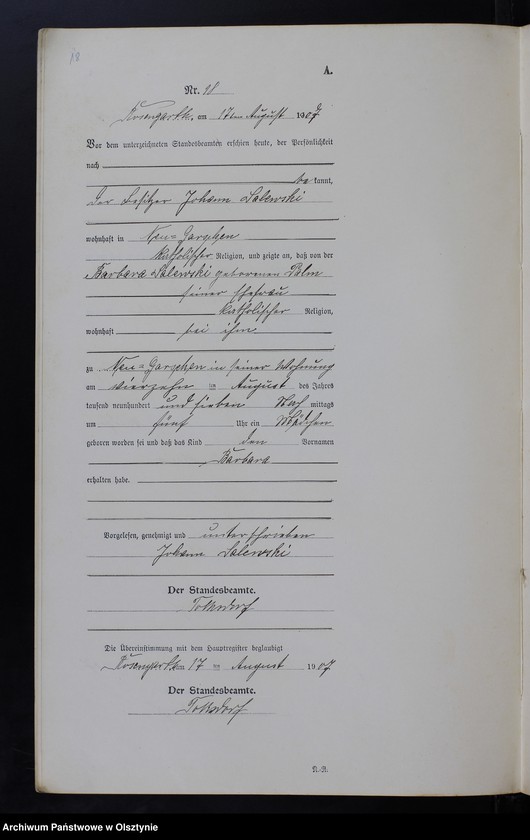 18
A.
Nr. 18
Rosengarth, am 17ten August 1907
Vor dem unterzeichneten Standesbeamten erschien heute, der Persönlichkeit
nach
be kannt,
der Besitzer Johann Salewski
wohnhaft in Neu=Garschen
katholischer Religion, und zeigte an, daß von der
Barbara Salewski geborenen Palm
seiner Ehefrau
katholischer Religion,
wohnhaft bei ihm
zu Neu=Garschen in seiner Wohnung
am vierzehn ten August des Jahres
tausend neunhundert und sieben Nach mittags
um fünf Uhr ein Mädchen
geboren worden sei und daß das Kind den Vornamen
Barbara
erhalten habe.
Vorgelesen, genehmigt und unterschrieben
Johann Salewski
Der Standesbeamte.
Tolksdorf
Die Übereinstimmung mit dem Hauptregister beglaubigt
Rosengarth am 17 ten August 1907
Der Standesbeamte.
Tolksdorf
N.-R.
Archiwum Państwowe w Olsztynie